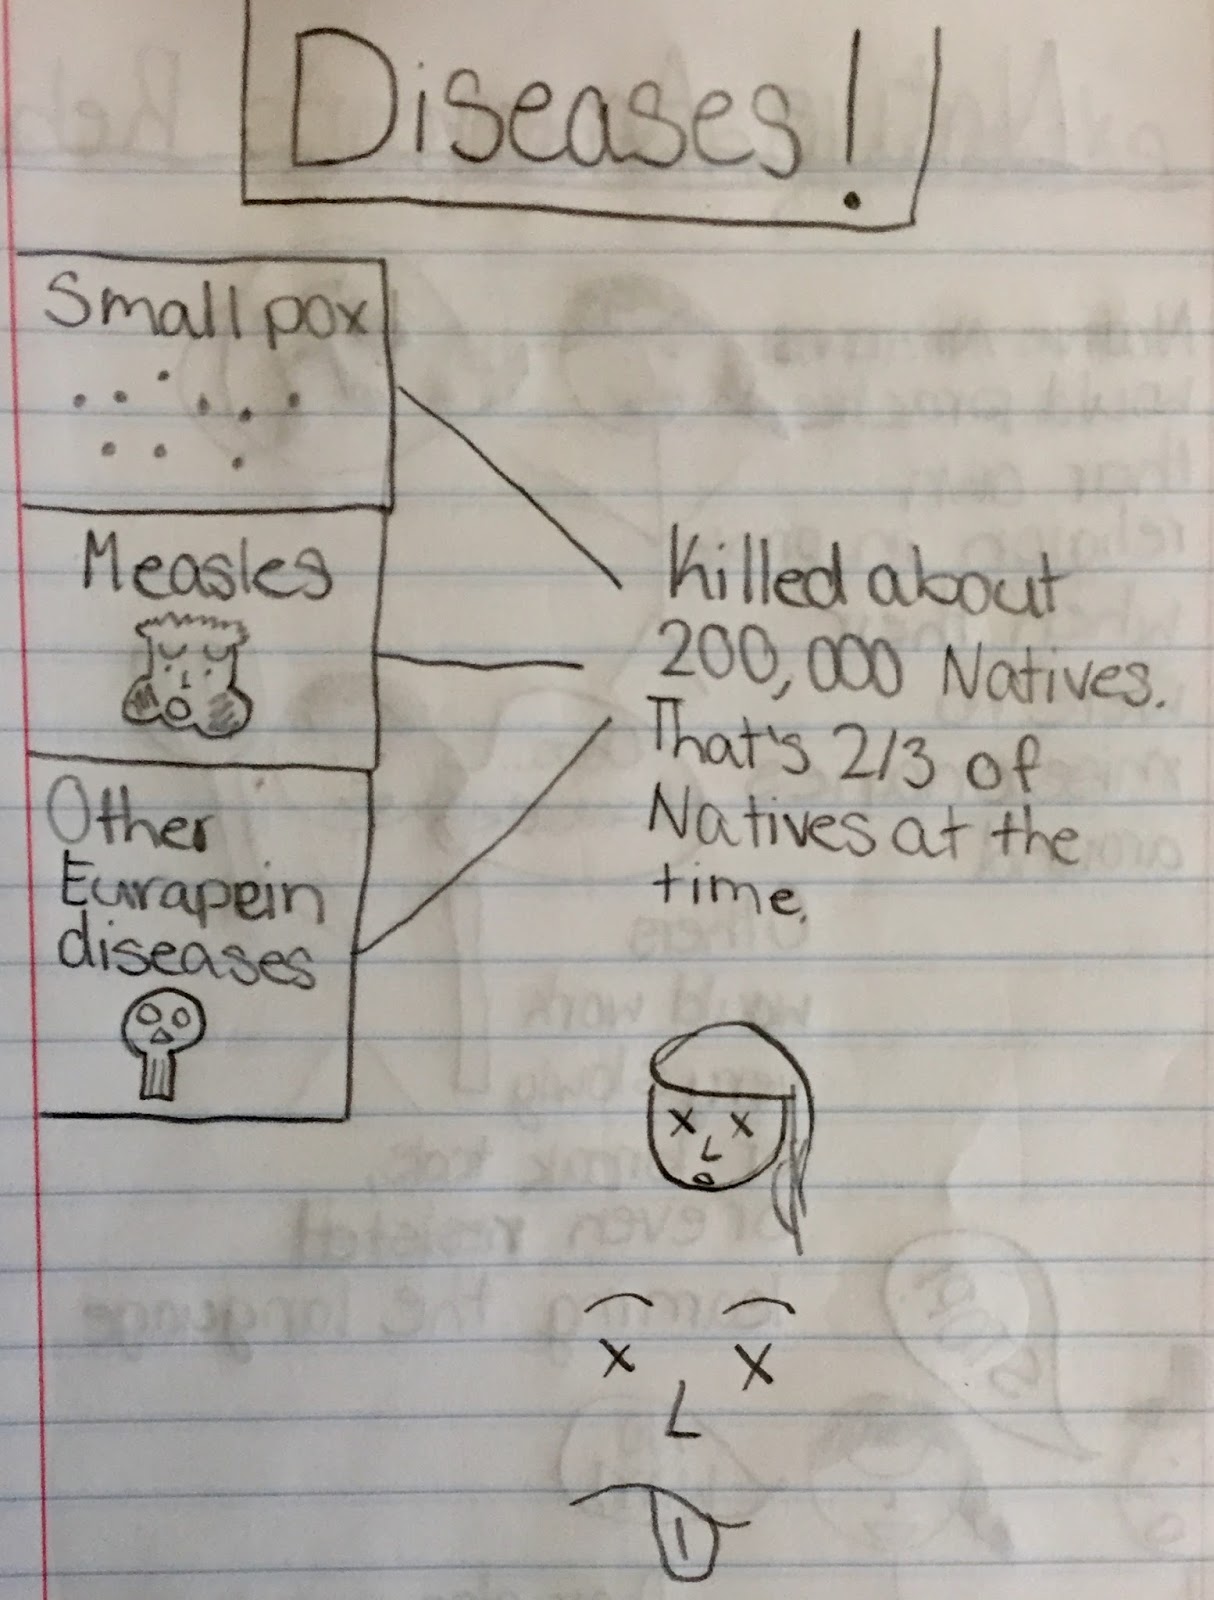 Diseases!
Small pox
Measles
Other
Eurapein
diseases
Killed about
200,000 Natives.
That's 2/3 of
Natives at the
time.